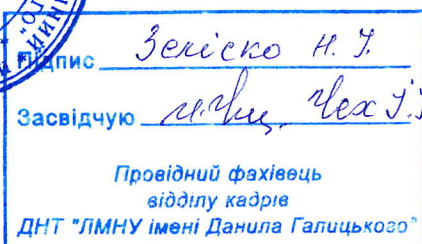 Підпис Зеліско Н. І.
Засвідчую Чех І.
Провідний фахівець
відділу кадрів
ДНТ "ЛМНУ імені Данила Галицького"